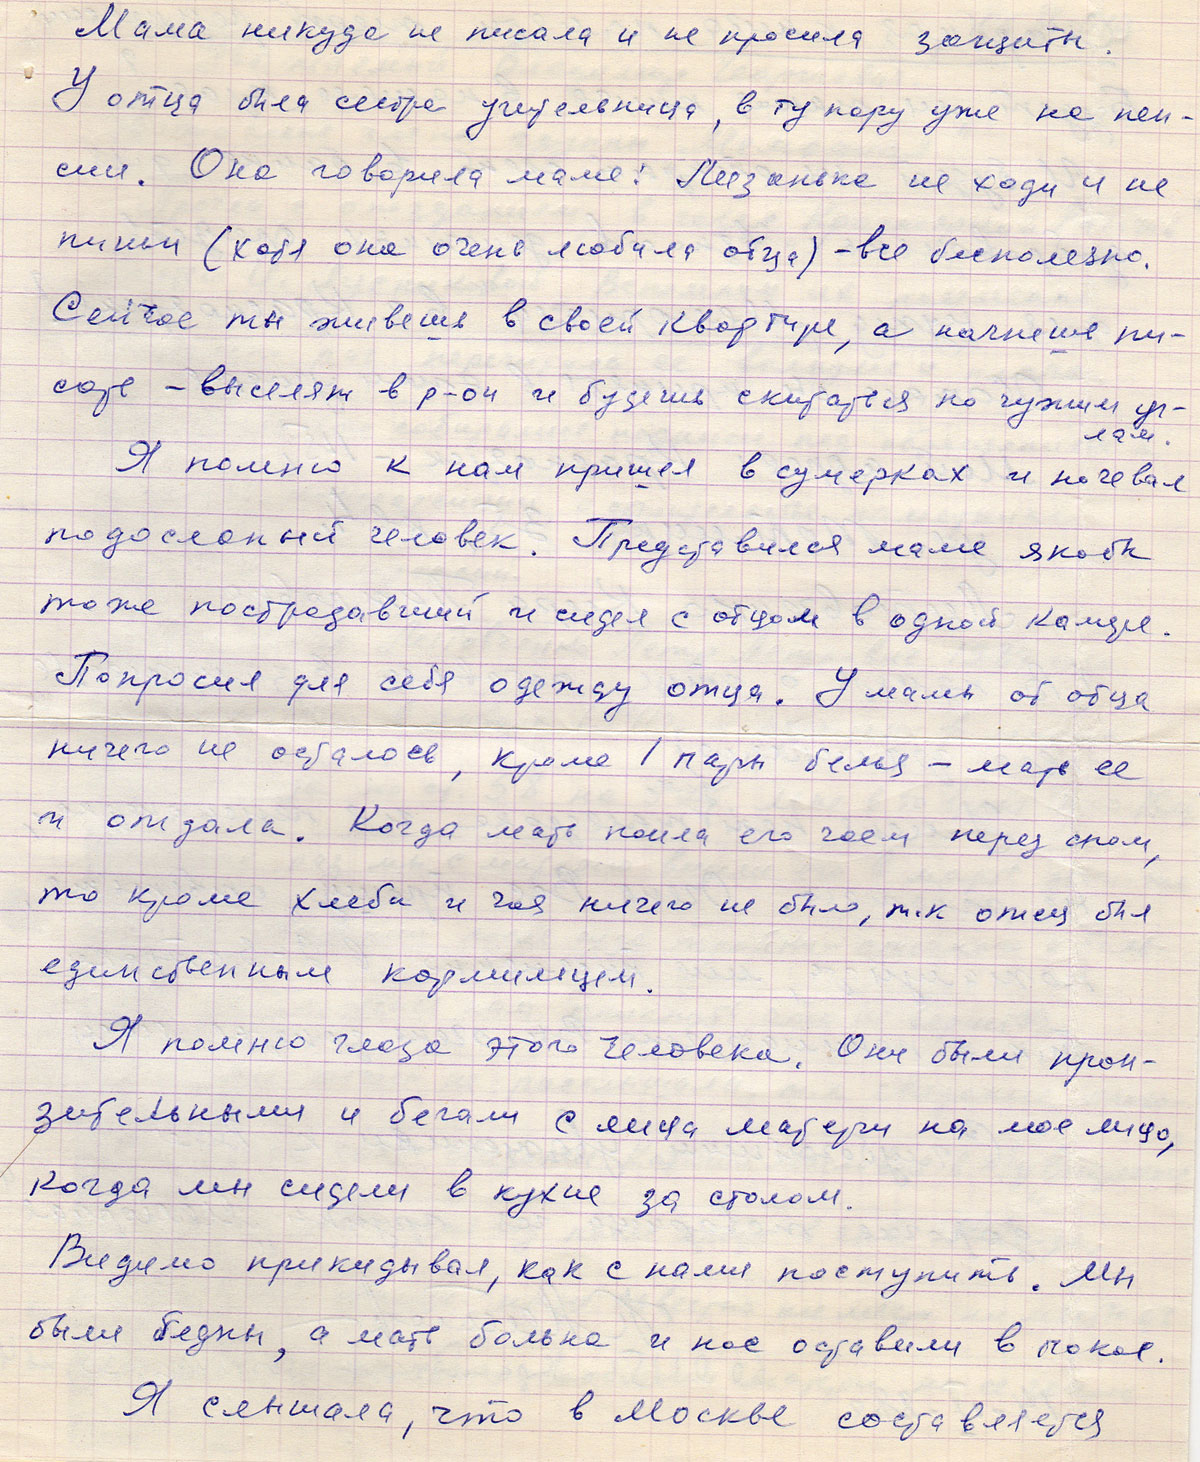 Мама никуда не писала и не просила защиты.
У отца была сестра учительница, в ту пору уже на пен-
сии. Она говорила маме: Лизанька не ходи и не
пиши (хотя она очень любила отца) – все бесполезно.
Сейчас ты живешь в своей квартире, а начнешь пи-
сать – выселят в р-он и будешь скитаться по чужим уг-
лам.
Я помню к нам пришел в сумерках и ночевал
подосланый человек. Представился маме якобы
тоже пострадавший и сидел с отцом в одной камере.
Попросил для себя одежду отца. У мамы от отца
ничего не осталось, кроме 1 пары белья – мать ее
и отдала. Когда мать поила его чаем перед сном,
то кроме хлеба и чая ничего не было, т.к отец был
единственным кормильцем.
Я помню глаза этого человека. Они были прон-
зительными и бегали с лица матери на мое лицо,
когда мы сидели в кухне за столом.
Видимо прикидывал, как с нами поступить. Мы
были бедны, а мать больна и нас оставили в покое.
Я слышала, что в Москве составляется